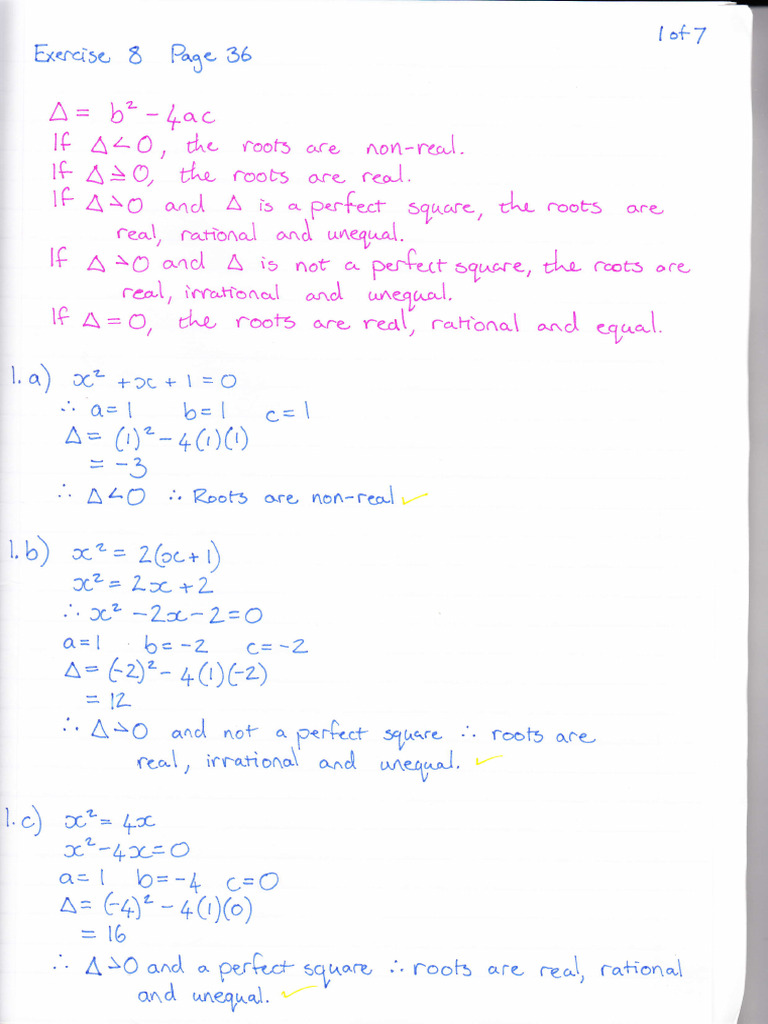 1 of 7
Exercise 8 Page 36
Δ = b² - 4ac
If Δ<0, the roots are non-real.
If Δ≥0, the roots are real.
If Δ>0 and Δ is a perfect square, the roots are
real, rational and unequal.
If Δ>0 and Δ is not a perfect square, the roots are
real, irrational and unequal.
If Δ=0, the roots are real, rational and equal.
1.a) x² + x + 1 = 0
∴ a=1 b=1 c=1
Δ = (1)² - 4(1)(1)
= -3
∴ Δ<0 ∴ Roots are non-real ✓
1.b) x² = 2(x+1)
x² = 2x + 2
∴ x² - 2x - 2 = 0
a=1 b=-2 c=-2
Δ = (-2)² - 4(1)(-2)
= 12
∴ Δ>0 and not a perfect square ∴ roots are
real, irrational and unequal. ✓
1.c) x² = 4x
x² - 4x = 0
a=1 b=-4 c=0
Δ = (-4)² - 4(1)(0)
= 16
∴ Δ>0 and a perfect square ∴ roots are real, rational
and unequal. ✓